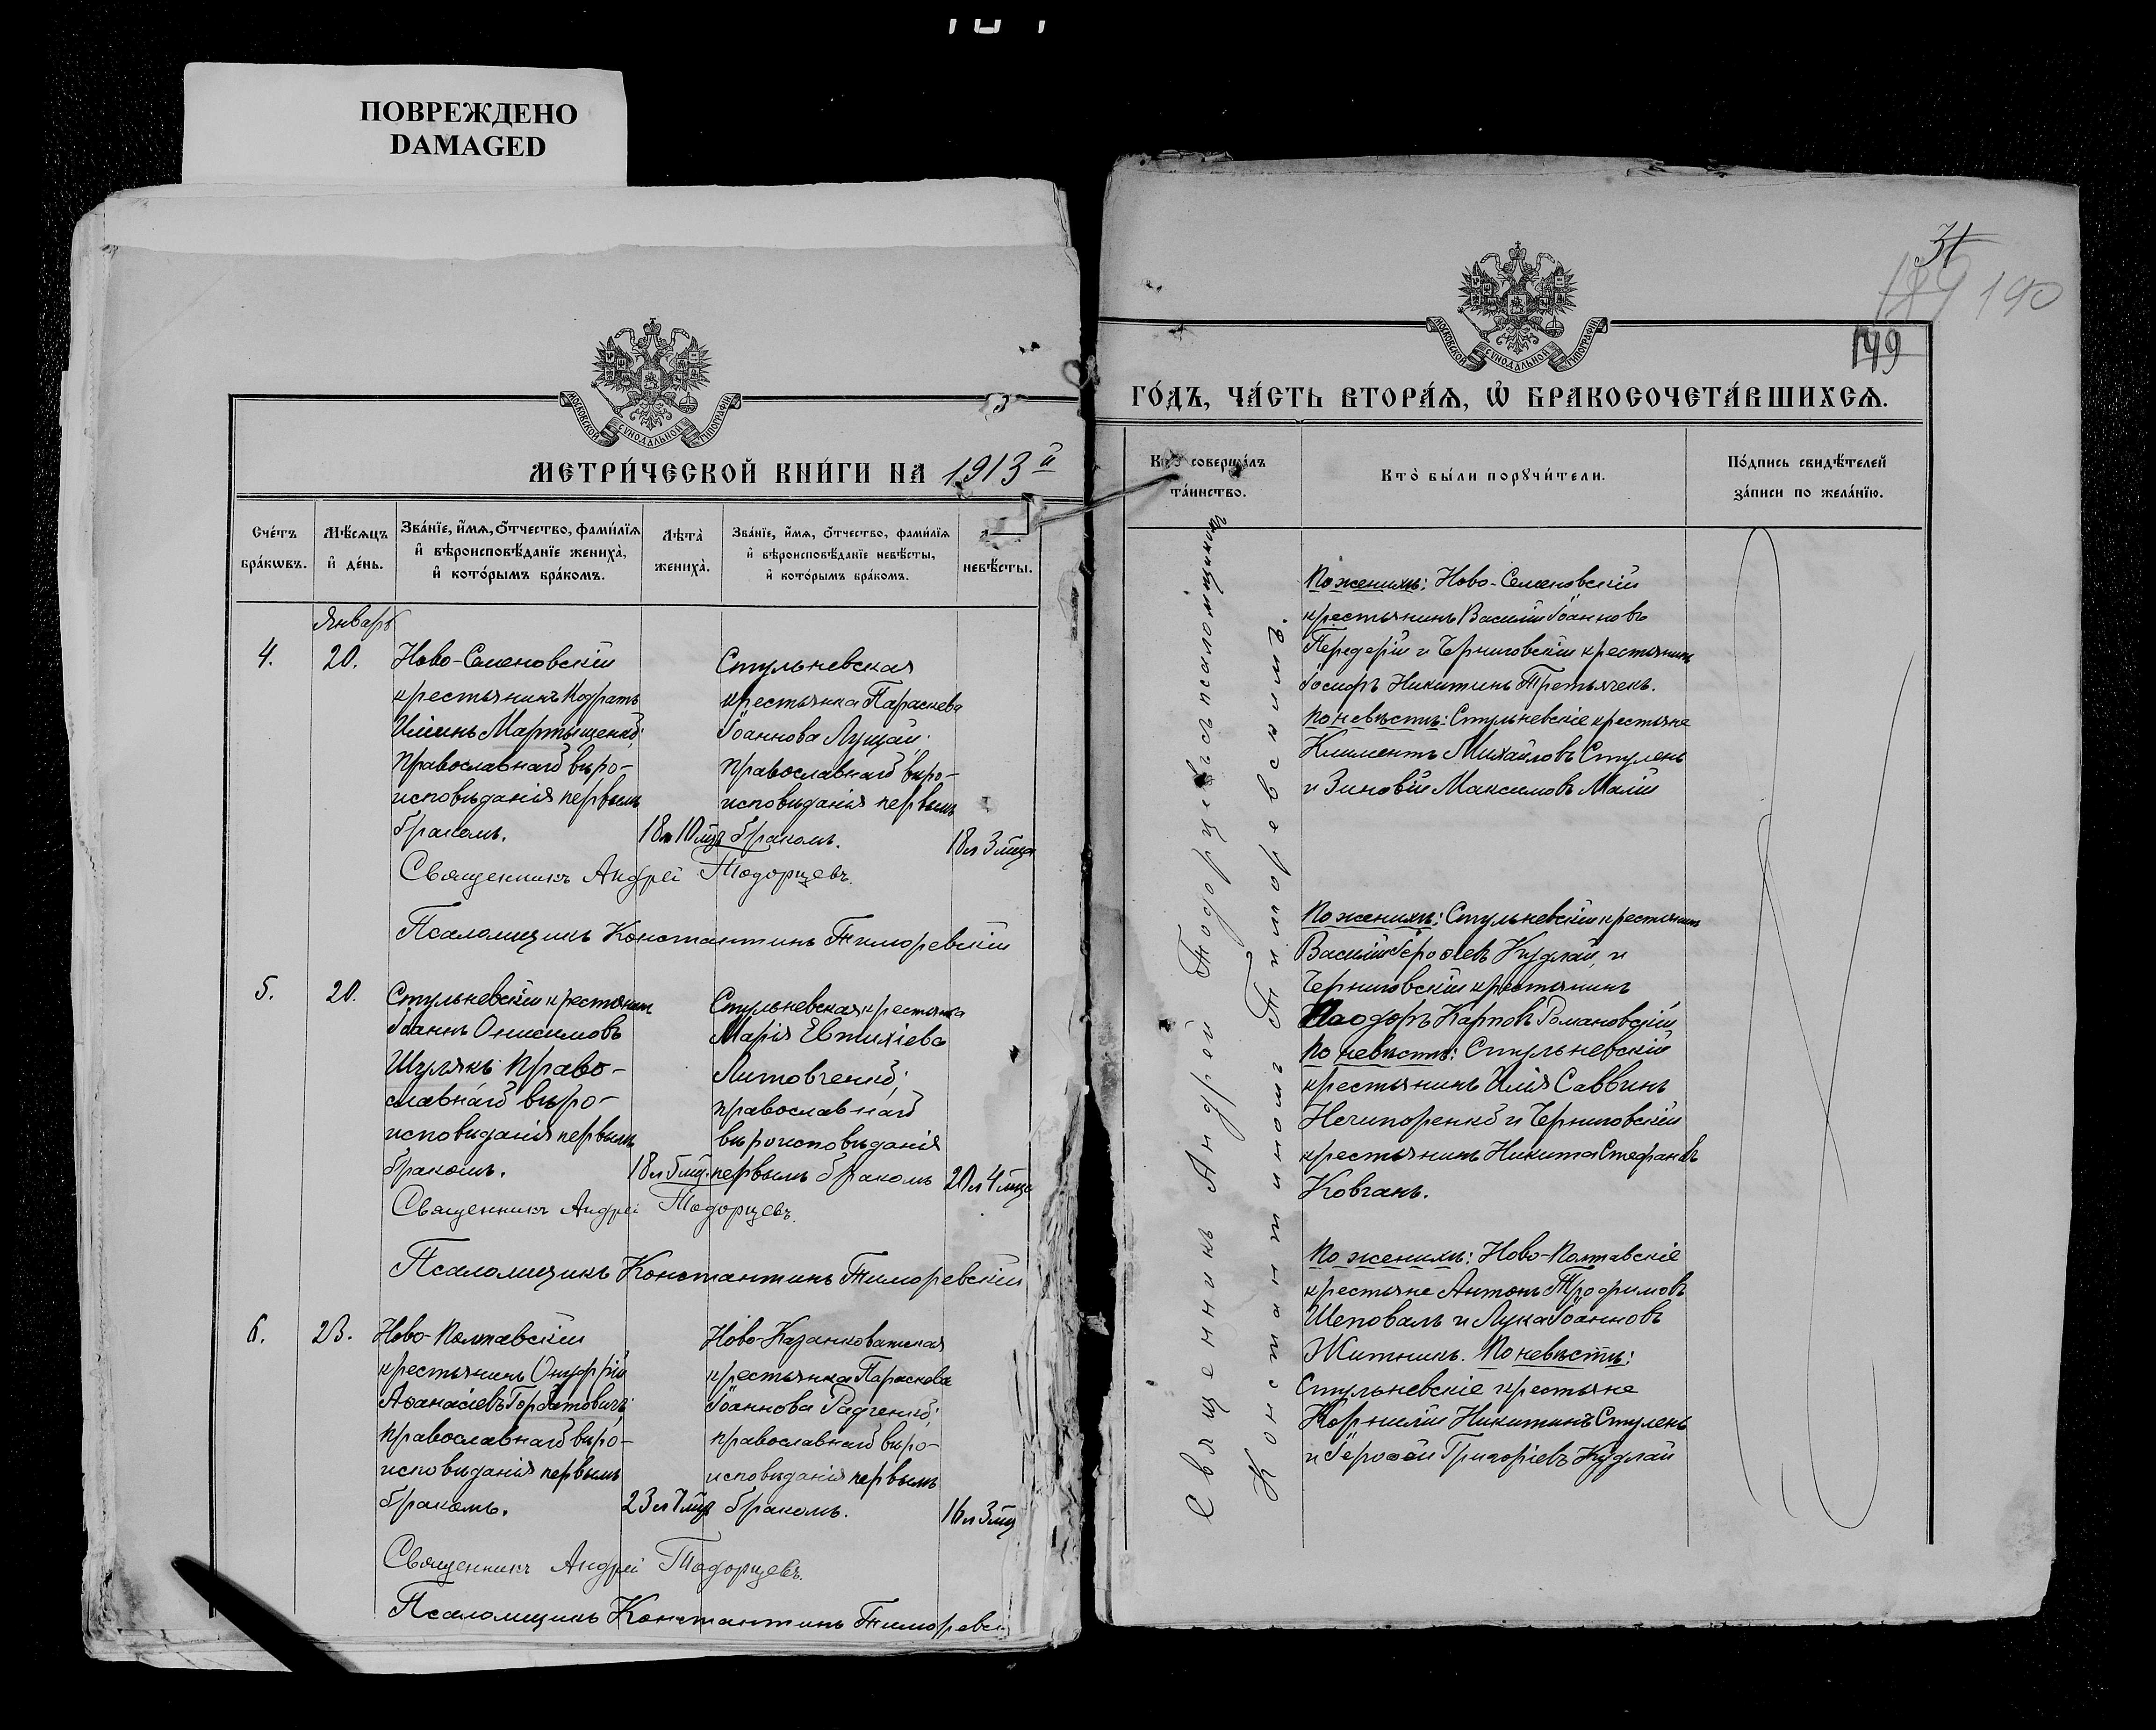 ПОВРЕЖДЕНО
DAMAGED
МОСКОВСКОЙ СѴНОДАЛЬНОЙ ТИПОГРАФІИ
МЕТРИ́ЧЕСКОЙ КНИ́ГИ НА 1913й
Сче́тъ бра́кωвъ.
Мѣ́сѧцъ и҆ де́нь.
Зва́нїе, и҆́мѧ, ѻ҆́тчество, фами́лїѧ
и҆ вѣроисповѣ́данїе жениха̀,
и҆ кото́рымъ бра́комъ.
Лѣ́та̀
жениха̀.
Зва́нїе, и҆́мѧ, ѻ҆́тчество, фами́лїѧ
и҆ вѣроисповѣ́данїе невѣ́сты,
и҆ кото́рымъ бра́комъ.
невѣ́сты.
Январь
4. 20.
Ново-Семеновскій
крестьянинъ Кодратъ
Иліинъ Мартыщенко;
православнаго вѣро-
исповѣданія первымъ
бракомъ.
18 л 10 мцъ
Стульневская
крестьянка Параскева
Іоаннова Лущай;
православнаго вѣро-
исповѣданія первымъ
бракомъ.
18 л 3 мца
Священникъ Андрей Тодорцевъ.
Псаломщикъ Константинъ Тиморевскій
5. 20.
Стульневскій крестьянинъ
Іоаннъ Онисимовъ
Шулякъ право-
славнаго вѣро-
исповѣданія первымъ
бракомъ.
18 л 5 мц.
Стульневская крестьянка
Марія Евтихіева
Литовченко;
православнаго
вѣроисповѣданія
первымъ бракомъ
20 л 4 мца
Священникъ Андрей Тодорцевъ.
Псаломщикъ Константинъ Тиморевскій
6. 23.
Ново-Полтавскій
крестьянинъ Онуфрій
Аѳанасіевъ Горбатовичъ;
православнаго вѣро-
исповѣданія первымъ
бракомъ.
23 л 7 мцъ
Ново-Казанковатская
крестьянка Параскева
Іоаннова Радченко;
православнаго вѣро-
исповѣданія первымъ
бракомъ.
16 л 3 мц
Священникъ Андрей Тодорцевъ.
Псаломщикъ Константинъ Тиморевскі
31
189 190
149
МОСКОВСКОЙ СѴНОДАЛЬНОЙ ТИПОГРАФІИ
ГО́ДЪ, ЧА́СТЬ ВТОРА́Ѧ, Ѡ҆ БРАКОСОЧЕТА́ВШИХСѦ.
Кто̀ соверша́лъ
та́инство.
Кто̀ бы́ли порꙋчи́тели.
По́дпись свидѣ́телей
за́писи по жела́нїю.
Священникъ Андрей Тодорцевъ съ псаломщикомъ
Константиномъ Тиморевскимъ.
По женихѣ: Ново-Семеновскій
крестьянинъ Василій Іоанновъ
Передерій и Черниговскій крестьянинъ
Іосифъ Никитинъ Третьячекъ.
По невѣстѣ: Стульневскіе крестьяне
Климентъ Михайловъ Стулень
и Зиновій Максимовъ Малій
По женихѣ: Стульневскій крестьянинъ
Василій Іероѳеевъ Кудлай, и
Черниговскій крестьянинъ
Ѳеодоръ Карповъ Романовскій
По невѣстѣ: Стульневскій
крестьянинъ Илія Саввинъ
Нечипоренко и Черниговскій
крестьянинъ Никита Стефановъ
Ковганъ.
По женихѣ: Ново-Полтавскіе
крестьяне Антонъ Трофимовъ
Шеповалъ и Лука Іоанновъ
Житникъ. По невѣстѣ:
Стульневскіе крестьяне
Корнилій Никитинъ Стулень
и Іероѳей Григоріевъ Кудлай